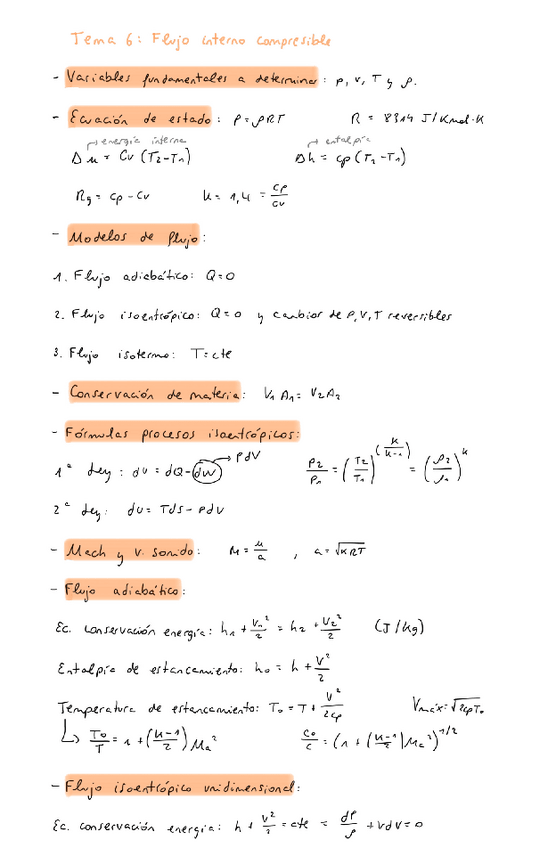 Tema 6: Flujo interno compresible
- Variables fundamentales a determinar: p, v, T y ρ.
- Ecuación de estado: P=ρRT R = 8314 J/Kmol·K
→ energía interna → entalpía
Δu = Cv (T2-T1) Δh = cp (T2-T1)
Rg = cp - Cv K = 1,4 = cp/cv
- Modelos de flujo:
1. Flujo adiabático: Q=0
2. Flujo isoentrópico: Q=0 y cambios de P,V,T reversibles
3. Flujo isotermo: T=cte
- Conservación de materia: V1 A1 = V2 A2
- Fórmulas procesos isoentrópicos:
1ª Ley: du = dQ - dW → PdV P2/P1 = (T2/T1)^(K/K-1) = (ρ2/ρ1)^K
2ª Ley: du = TdS - PdV
- Mach y v. sonido: M = u/a , a = √KRT
- Flujo adiabático:
Ec. conservación energía: h1 + V1²/2 = h2 + V2²/2 (J/kg)
Entalpía de estancamiento: h0 = h + V²/2
Temperatura de estancamiento: T0 = T + V²/2cp Vmáx = √2cpT0
↳ T0/T = 1 + (K-1/2) Ma² C0/C = (1 + (K-1/2) Ma²)^1/2
- Flujo isoentrópico unidimensional:
Ec. conservación energía: h + V²/2 = cte = dP/ρ + VdV = 0